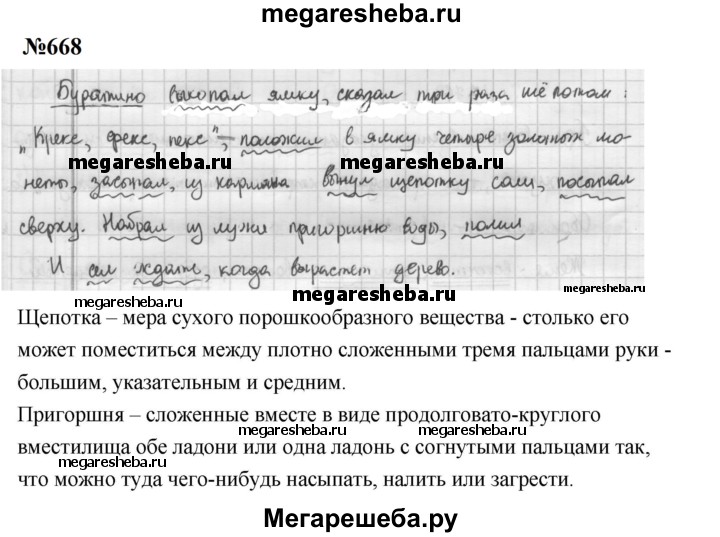 megaresheba.ru
№668
Буратино выкопал ямку, сказал три раза шёпотом:
„Крекс, фекс, пекс", положил в ямку четыре золотых мо-
megaresheba.ru megaresheba.ru
неты, засыпал, из кармана вынул щепотку соли, посыпал
сверху. Набрал из лужи пригоршню воды, полил
И сел ждать, когда вырастет дерево.
megaresheba.ru megaresheba.ru megaresheba.ru
Щепотка – мера сухого порошкообразного вещества - столько его
может поместиться между плотно сложенными тремя пальцами руки -
большим, указательным и средним.
Пригоршня – сложенные вместе в виде продолговато-круглого
megaresheba.ru megaresheba.ru
вместилища обе ладони или одна ладонь с согнутыми пальцами так,
megaresheba.ru
что можно туда чего-нибудь насыпать, налить или загрести.
Мегарешеба.ру